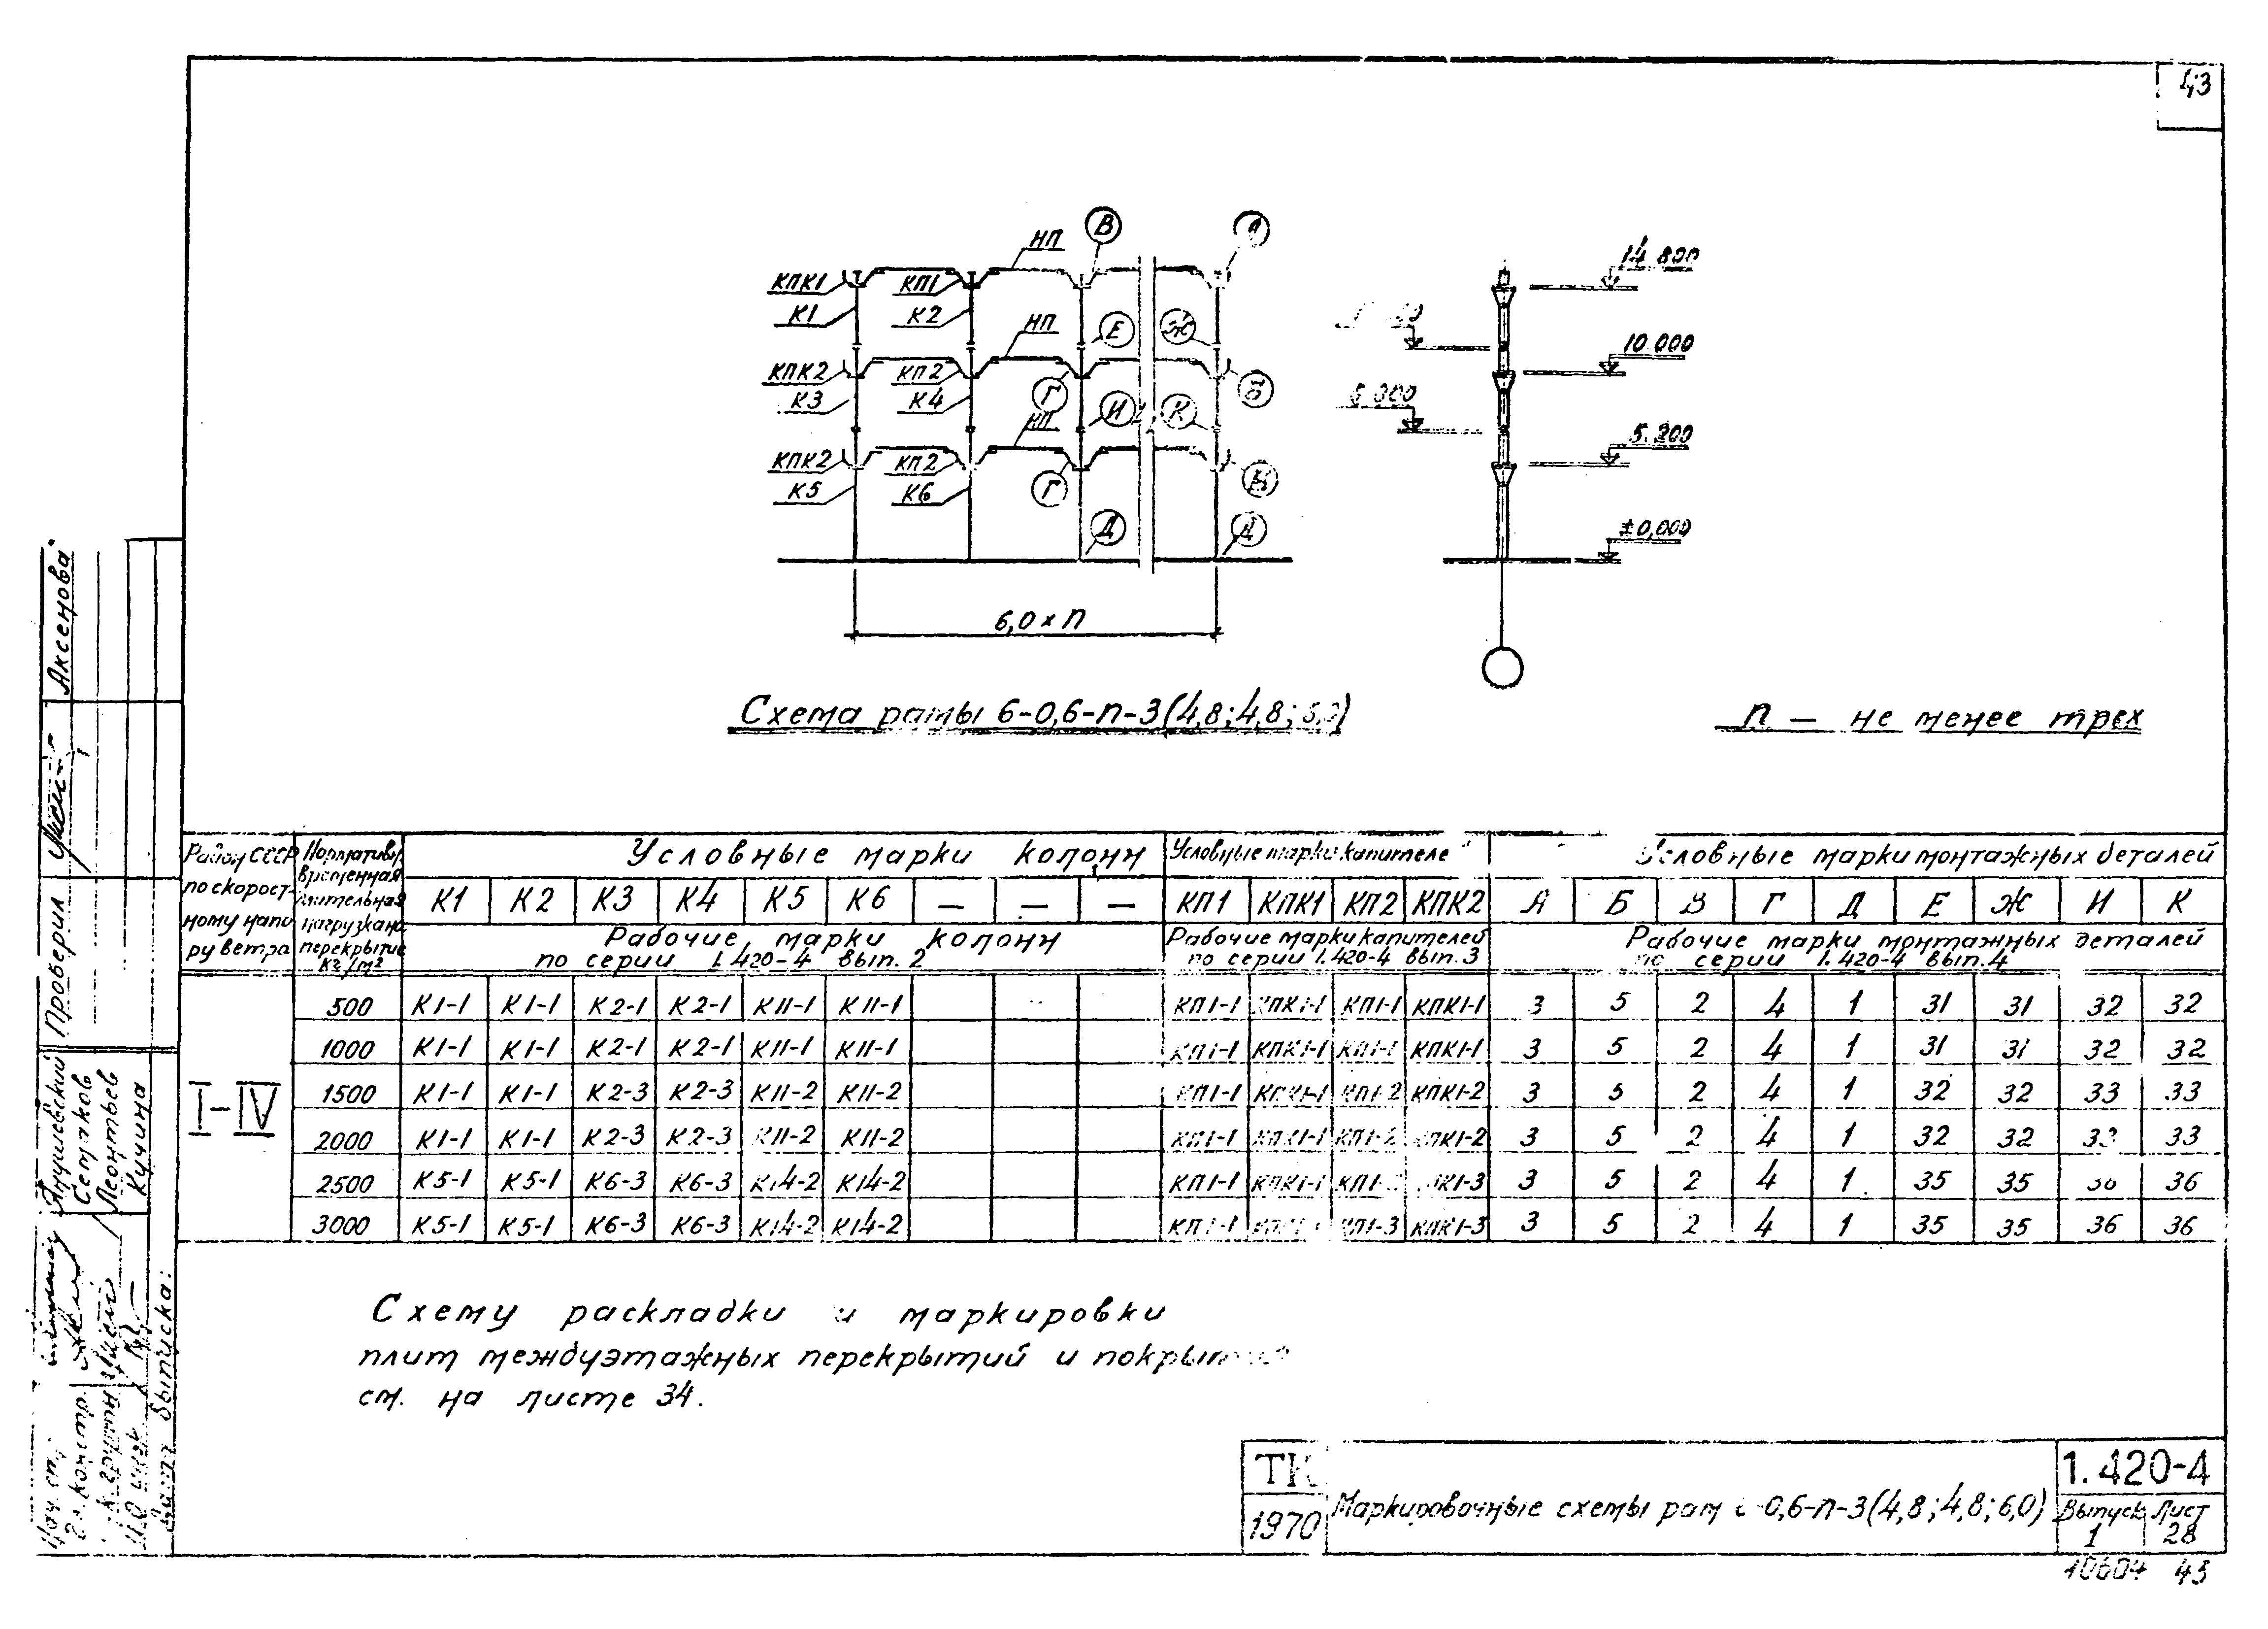 43
В
А
НП
КПК1
КП1
К1
К2
НП
Е
Ж
КПК2
КП2
К3
К4
Г
Б
НП
И
К
КПК2
КП2
К5
К6
Г
Д
Д
6,0 × П
14.800
10 000
5.200
±0,000
Схема рамы 6-0,6-п-3(4,8;4,8;
п — не менее трех
Район СССР по скорост- ному напо ру ветра
временная
перекрытие
кг/м²
Условные марки колонн
Условные марки капителе
Условные марки монтажных деталей
К1 К2 К3 К4 К5 К6 — — —
КП1 КПК1 КП2 КПК2
А Б В Г Д Е Ж И К
Рабочие марки колонн
по серии 1.420-4 вып. 2
Рабочие марки капителей
по серии 1.420-4 вып. 3
Рабочие марки монтажных деталей
по серии 1.420-4 вып. 4
I-IV
500 К1-1 К1-1 К2-1 К2-1 К11-1 К11-1 КП1-1 КПК1-1 КП1-1 КПК1-1 3 5 2 4 1 31 31 32 32
1000 К1-1 К1-1 К2-1 К2-1 К11-1 К11-1 КП1-1 КПК1-1 КП1-1 КПК1-1 3 5 2 4 1 31 31 32 32
1500 К1-1 К1-1 К2-3 К2-3 К11-2 К11-2 КП1-1 КПК1-1 КП1-2 КПК1-2 3 5 2 4 1 32 32 33 33
2000 К1-1 К1-1 К2-3 К2-3 К11-2 К11-2 КП1-1 КПК1-1 КП1-2 КПК1-2 3 5 2 4 1 32 32 33 33
2500 К5-1 К5-1 К6-3 К6-3 К14-2 К14-2 КП1-1 КПК1-1 3 5 2 4 1 35 35 36 36
3000 К5-1 К5-1 К6-3 К6-3 К14-2 К14-2 КП1-1 КП1-3 КПК1-3 3 5 2 4 1 35 35 36 36
Схему раскладки и маркировки
плит междуэтажных перекрытий и
см. на листе 34.
ТК
1970
Маркировочные схемы рам 6-0,6-п-3(4,8;4,8;6,0)
1.420-4
Выпуск Лист
1 28
10604 43
Проверил
Аксенова
Семяков
Леонтьев
Кучина
Гл. констр.
выпуска: